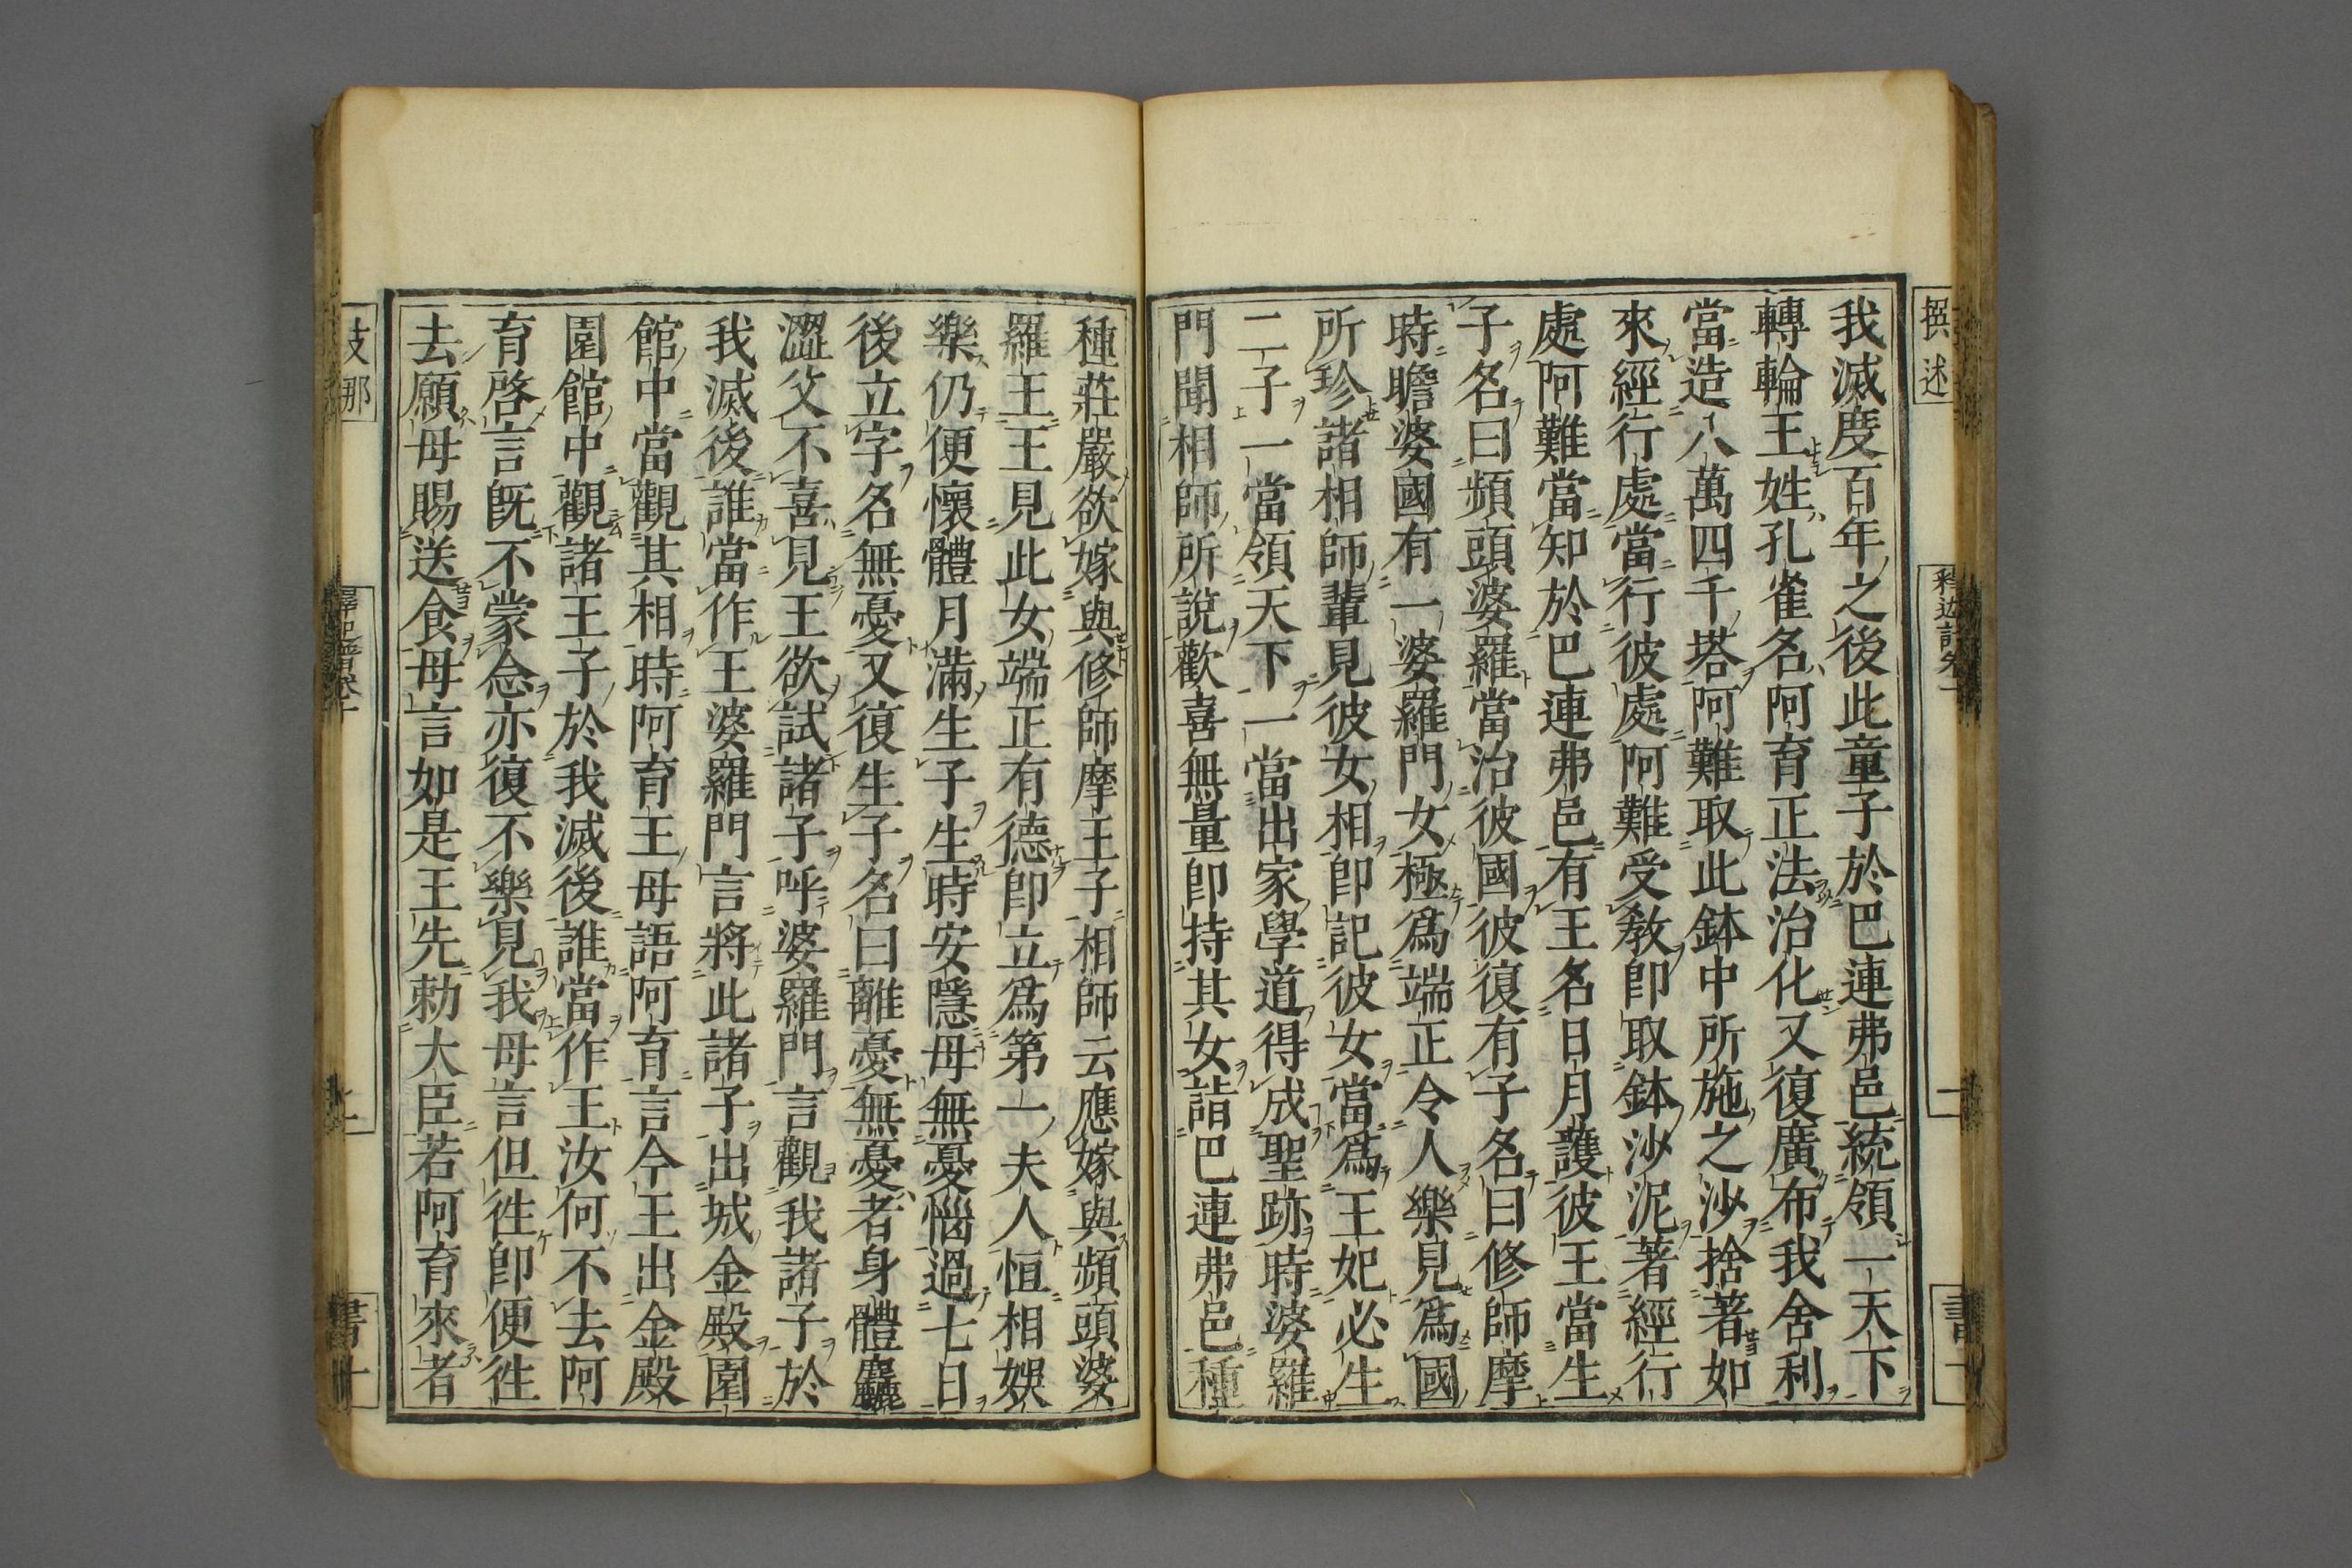 撰述
我滅度百年之後此童子於巴連弗邑統領一天下
轉輪王姓孔雀名阿育正法治化又復廣布我舍利
當造八萬四千塔阿難取此鉢中所施之沙捨著如
來經行處當行彼處阿難受教即取鉢沙泥著經行
處阿難當知於巴連弗邑有王名日月護彼王當生
子名曰頻頭婆羅當治彼國彼復有子名曰修師摩
時瞻婆國有一婆羅門女極爲端正令人樂見爲國
所珍諸相師輩見彼女相即記彼女當爲王妃必生
二子一當領天下一當出家學道得成聖跡時婆羅
門聞相師所說歡喜無量即持其女詣巴連弗邑種
種莊嚴欲嫁與修師摩王子相師云應嫁與頻頭婆
羅王王見此女端正有德即立爲第一夫人恒相娛
樂仍便懷體月滿生子生時安隱母無憂惱過七日
後立字名無憂又復生子名曰離憂無憂者身體麤
澀父不喜見王欲試諸子呼婆羅門言觀我諸子於
我滅後誰當作王婆羅門言將此諸子出城金殿園
館中當觀其相時阿育王母語阿育言今王出金殿
園館中觀諸王子於我滅後誰當作王汝何不去阿
育啓言既不蒙念亦復不樂見我母言但往即便往
去願母賜送食母言如是王先勅大臣若阿育來者